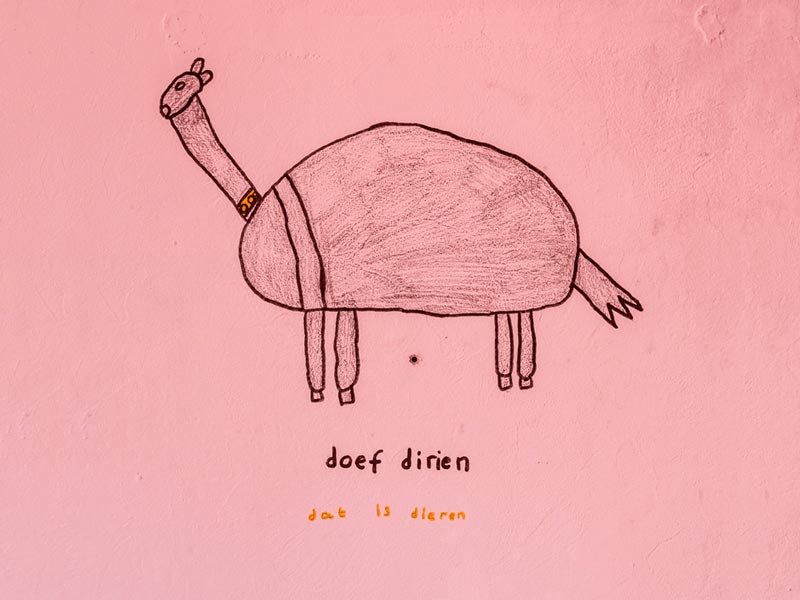 doef dirien
dat is dieren